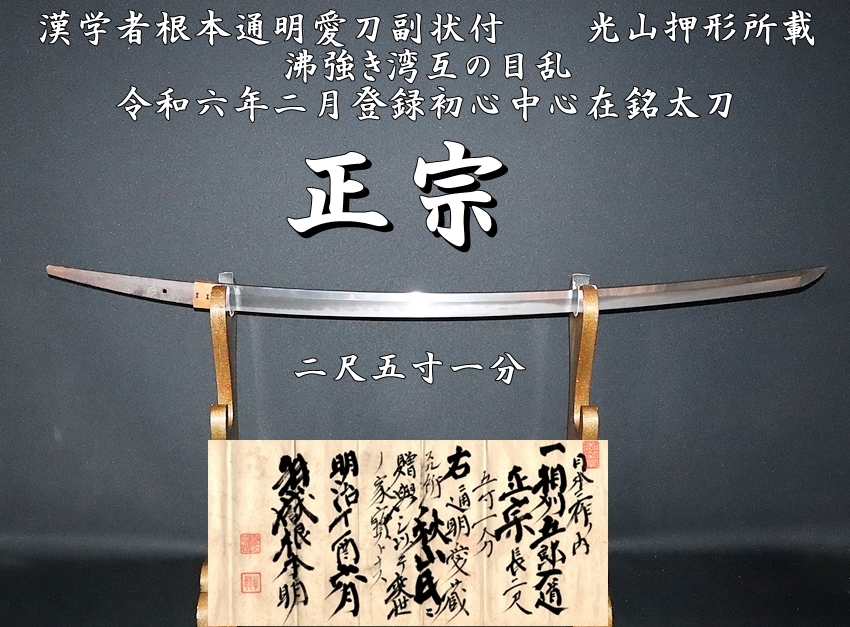 漢学者根本通明愛刀副状付　　光山押形所載
沸強き湾互の目乱
令和六年二月登録初心中心在銘太刀
正宗
二尺五寸一分
日本三作ノ内
一相州五郎入道
正宗　長二尺
五寸一分
右ニ通明愛蔵
秋山氏ニ
贈與
ノ家寶トス
明治十酉六月
根本通明